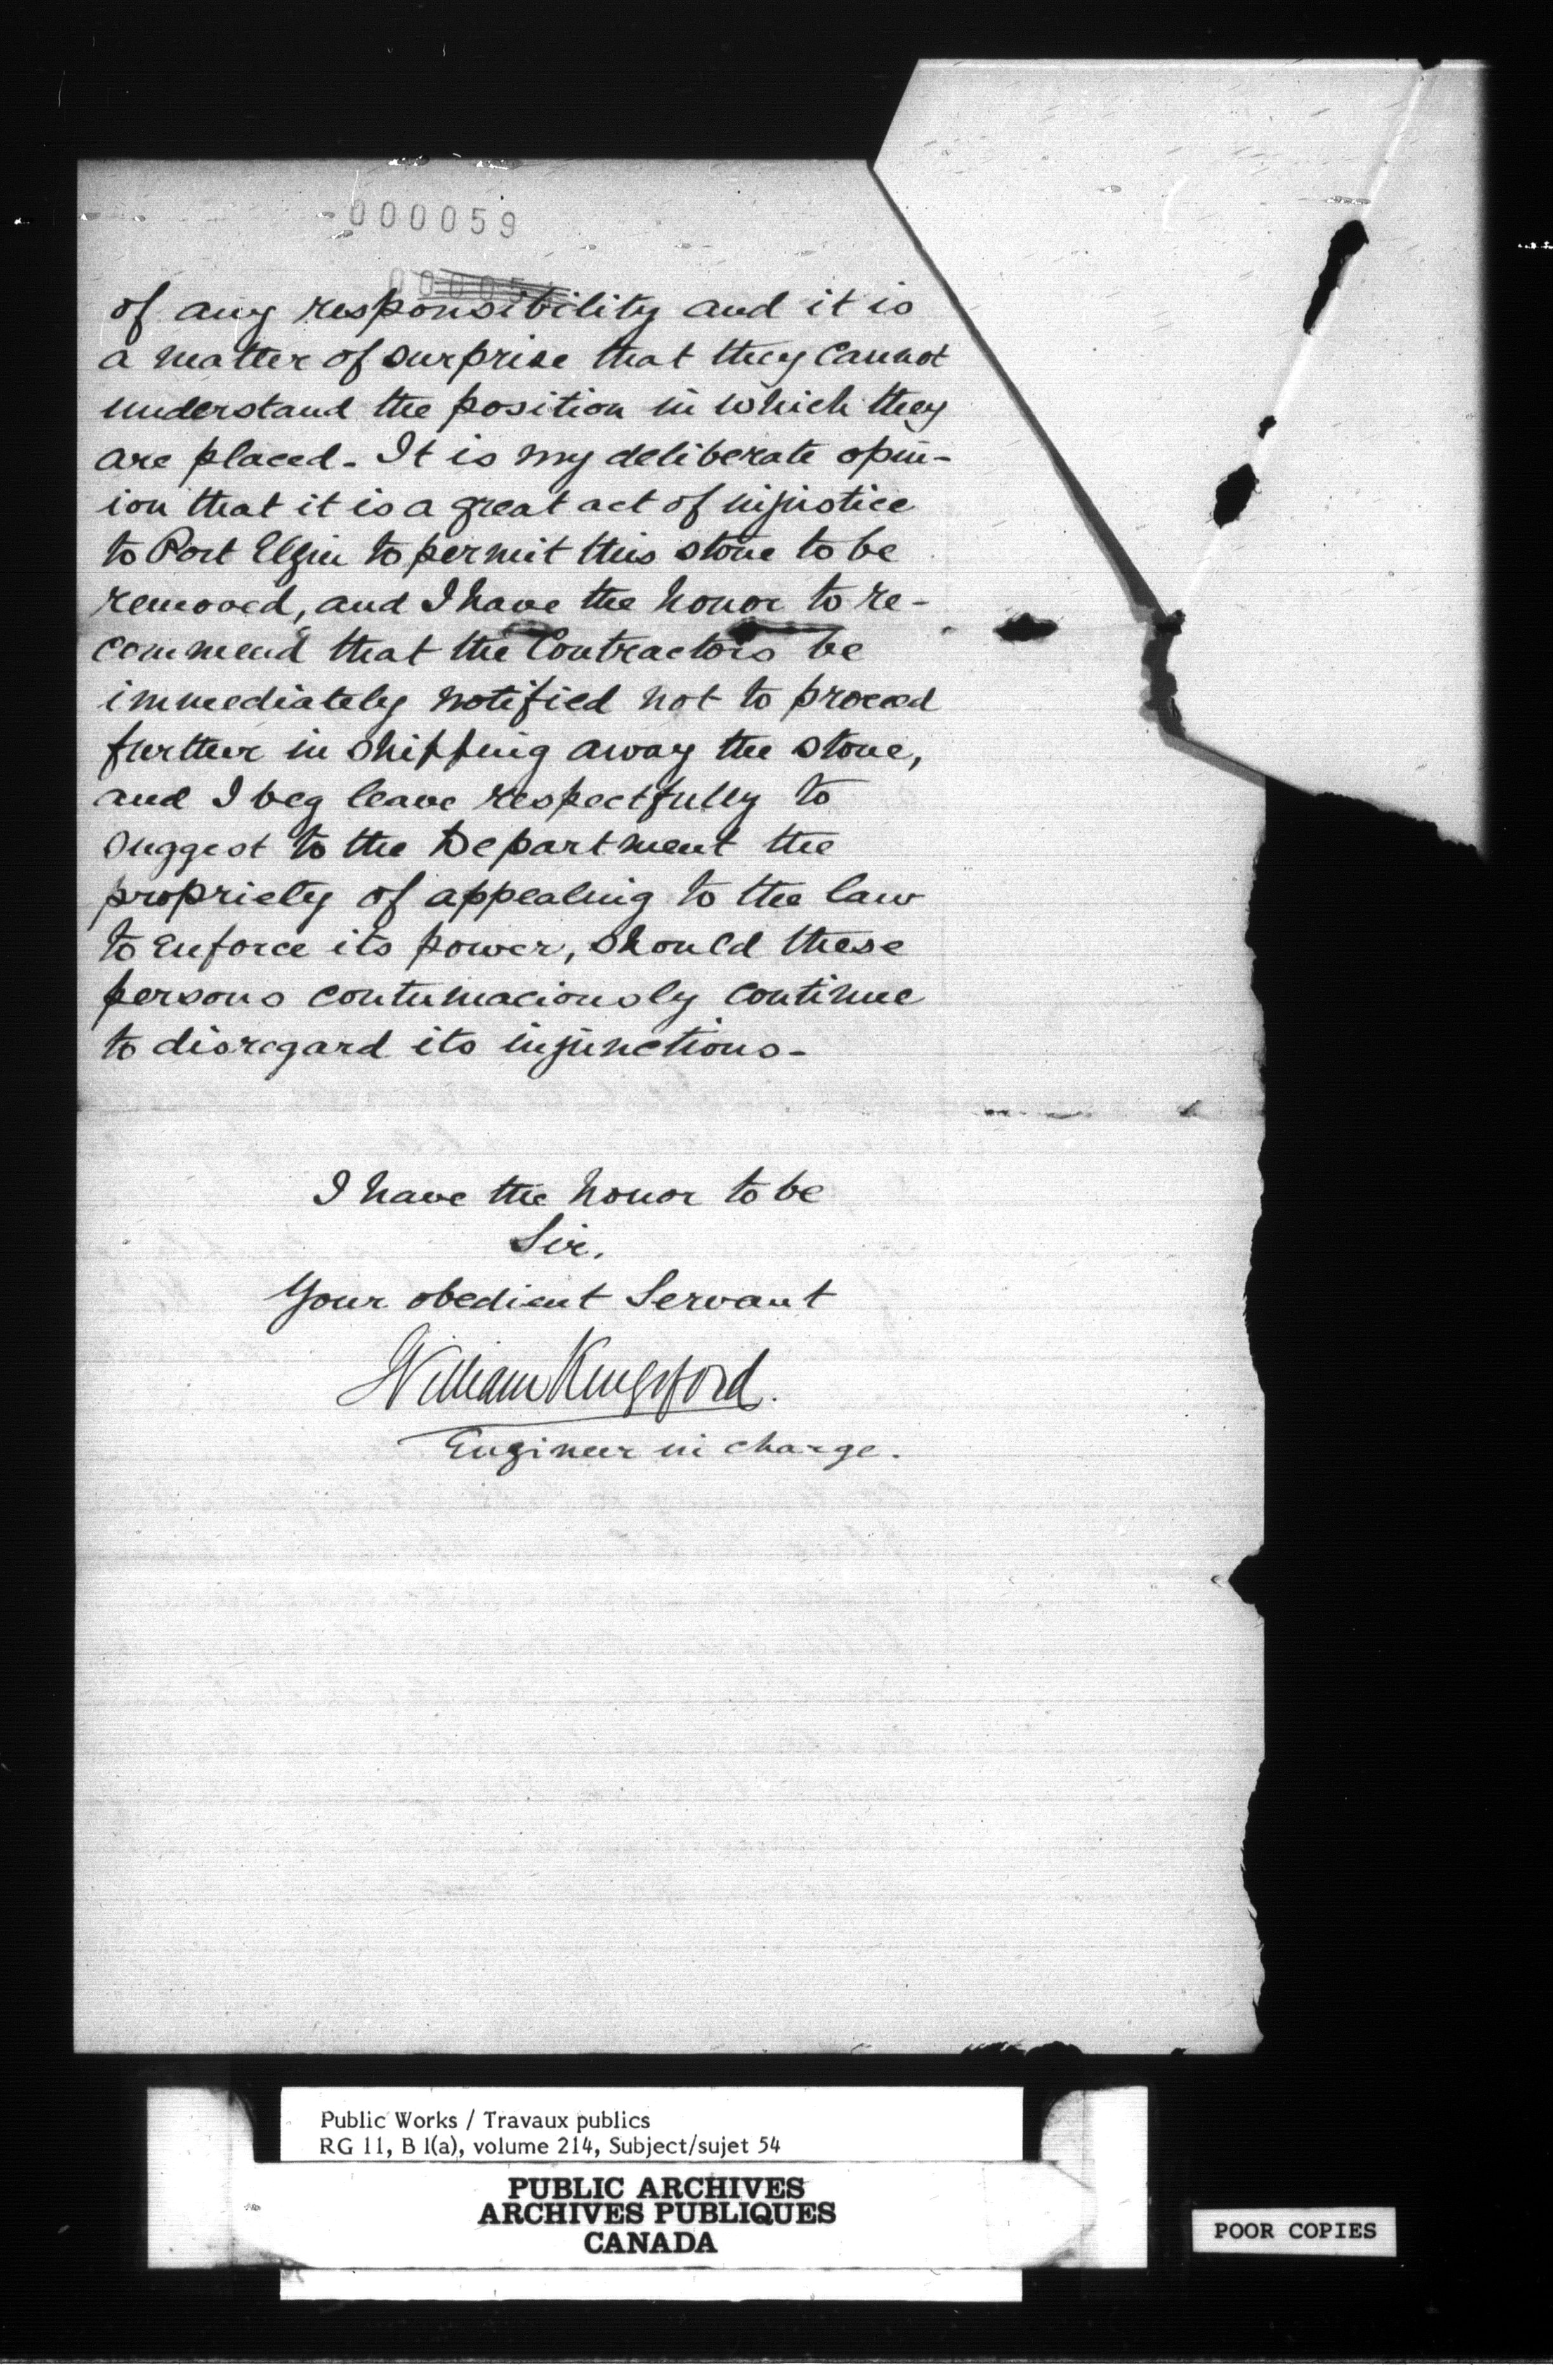 000059
of any responsibility and it is
a matter of surprise that they cannot
understand the position in which they
are placed - It is my deliberate opin-
ion that it is a great act of injustice
to Port Elgin to permit this stone to be
removed, and I have the honor to re-
commend that the Contractors be
immediately notified not to proceed
further in shipping away the stone,
and I beg leave respectfully to
suggest to the Department the
propriety of appealing to the law
to enforce its power, should these
persons contumaciously continue
to disregard its injunctions -
I have the honor to be
Sir,
Your obedient Servant
William Kingsford.
Engineer in charge.
Public Works / Travaux publics
RG 11, B 1(a), volume 214, Subject/sujet 54
PUBLIC ARCHIVES
ARCHIVES PUBLIQUES
CANADA
POOR COPIES